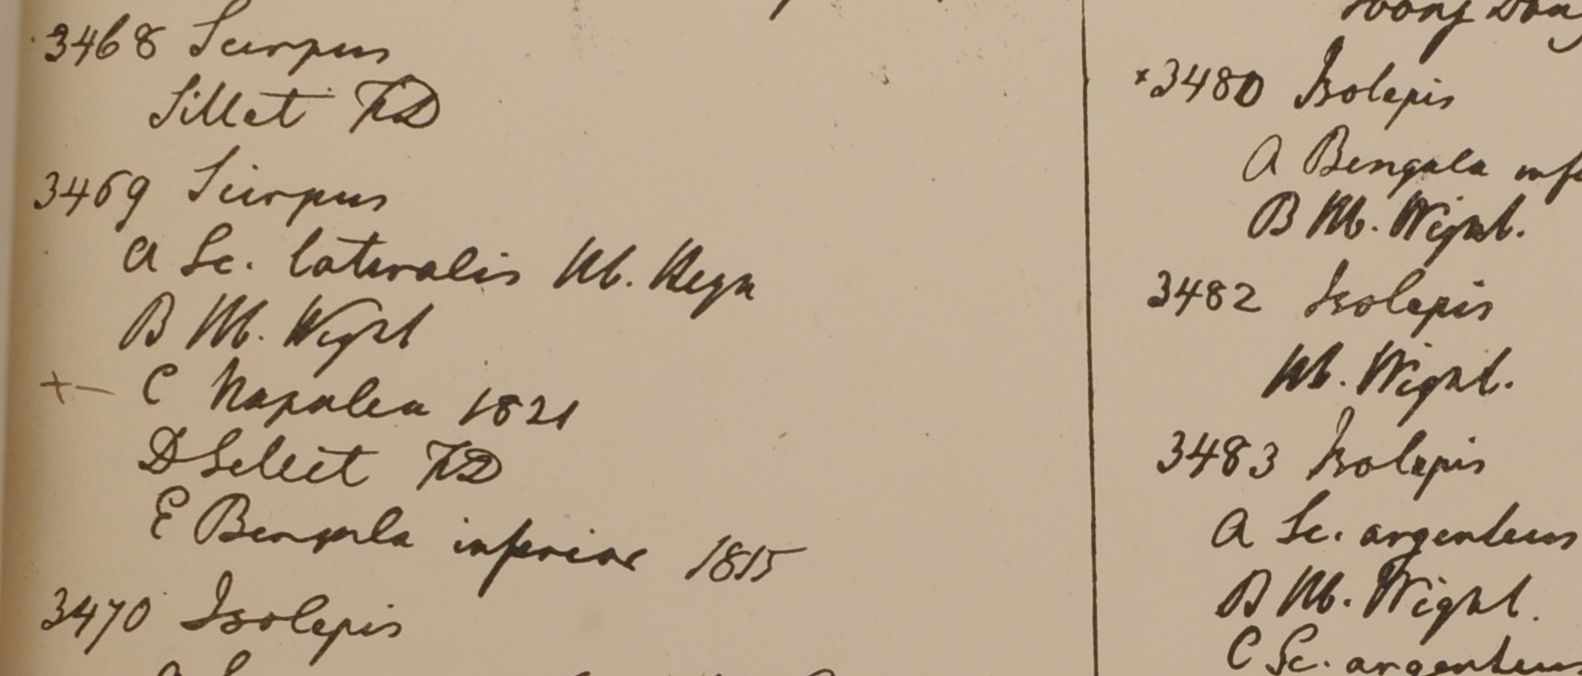 3468 Scirpus
Sillet FD
3469 Scirpus
a Sc. lateralis Hb. Heyn
B Hb. Wight
+ - C Napalea 1821
D Sellet FD
E Bengala inferior 1815
3470 Isolepis
×3480 Isolepis
a Bengala infe
B Hb. Wight.
3482 Isolepis
Hb. Wight.
3483 Isolepis
a Sc. argenteus
B Hb. Wight.
C Sc. argenteus